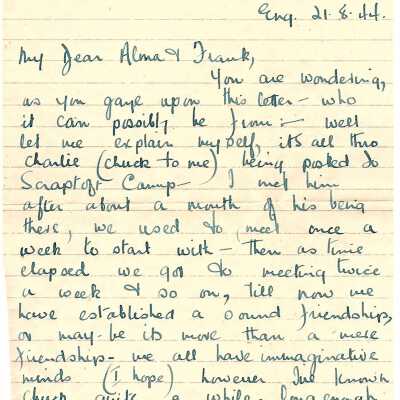 Eng. 21·8·44.
My Dear Alma & Frank,
You are wondering,
as you gaze upon this letter — who
it can possibly be from :— well
let me explain myself, it's all thro
Charlie (Chuck to me) being posted to
Scraptoft Camp — I met him
after about a month of his being
there, we used to meet once a
week to start with — then as time
elapsed we got to meeting twice
a week & so on, till now we
have established a sound friendship,
or may-be its more than a mere
friendship — we all have immaginative
minds (I hope) however I've known
Chuck quite a while — long enough